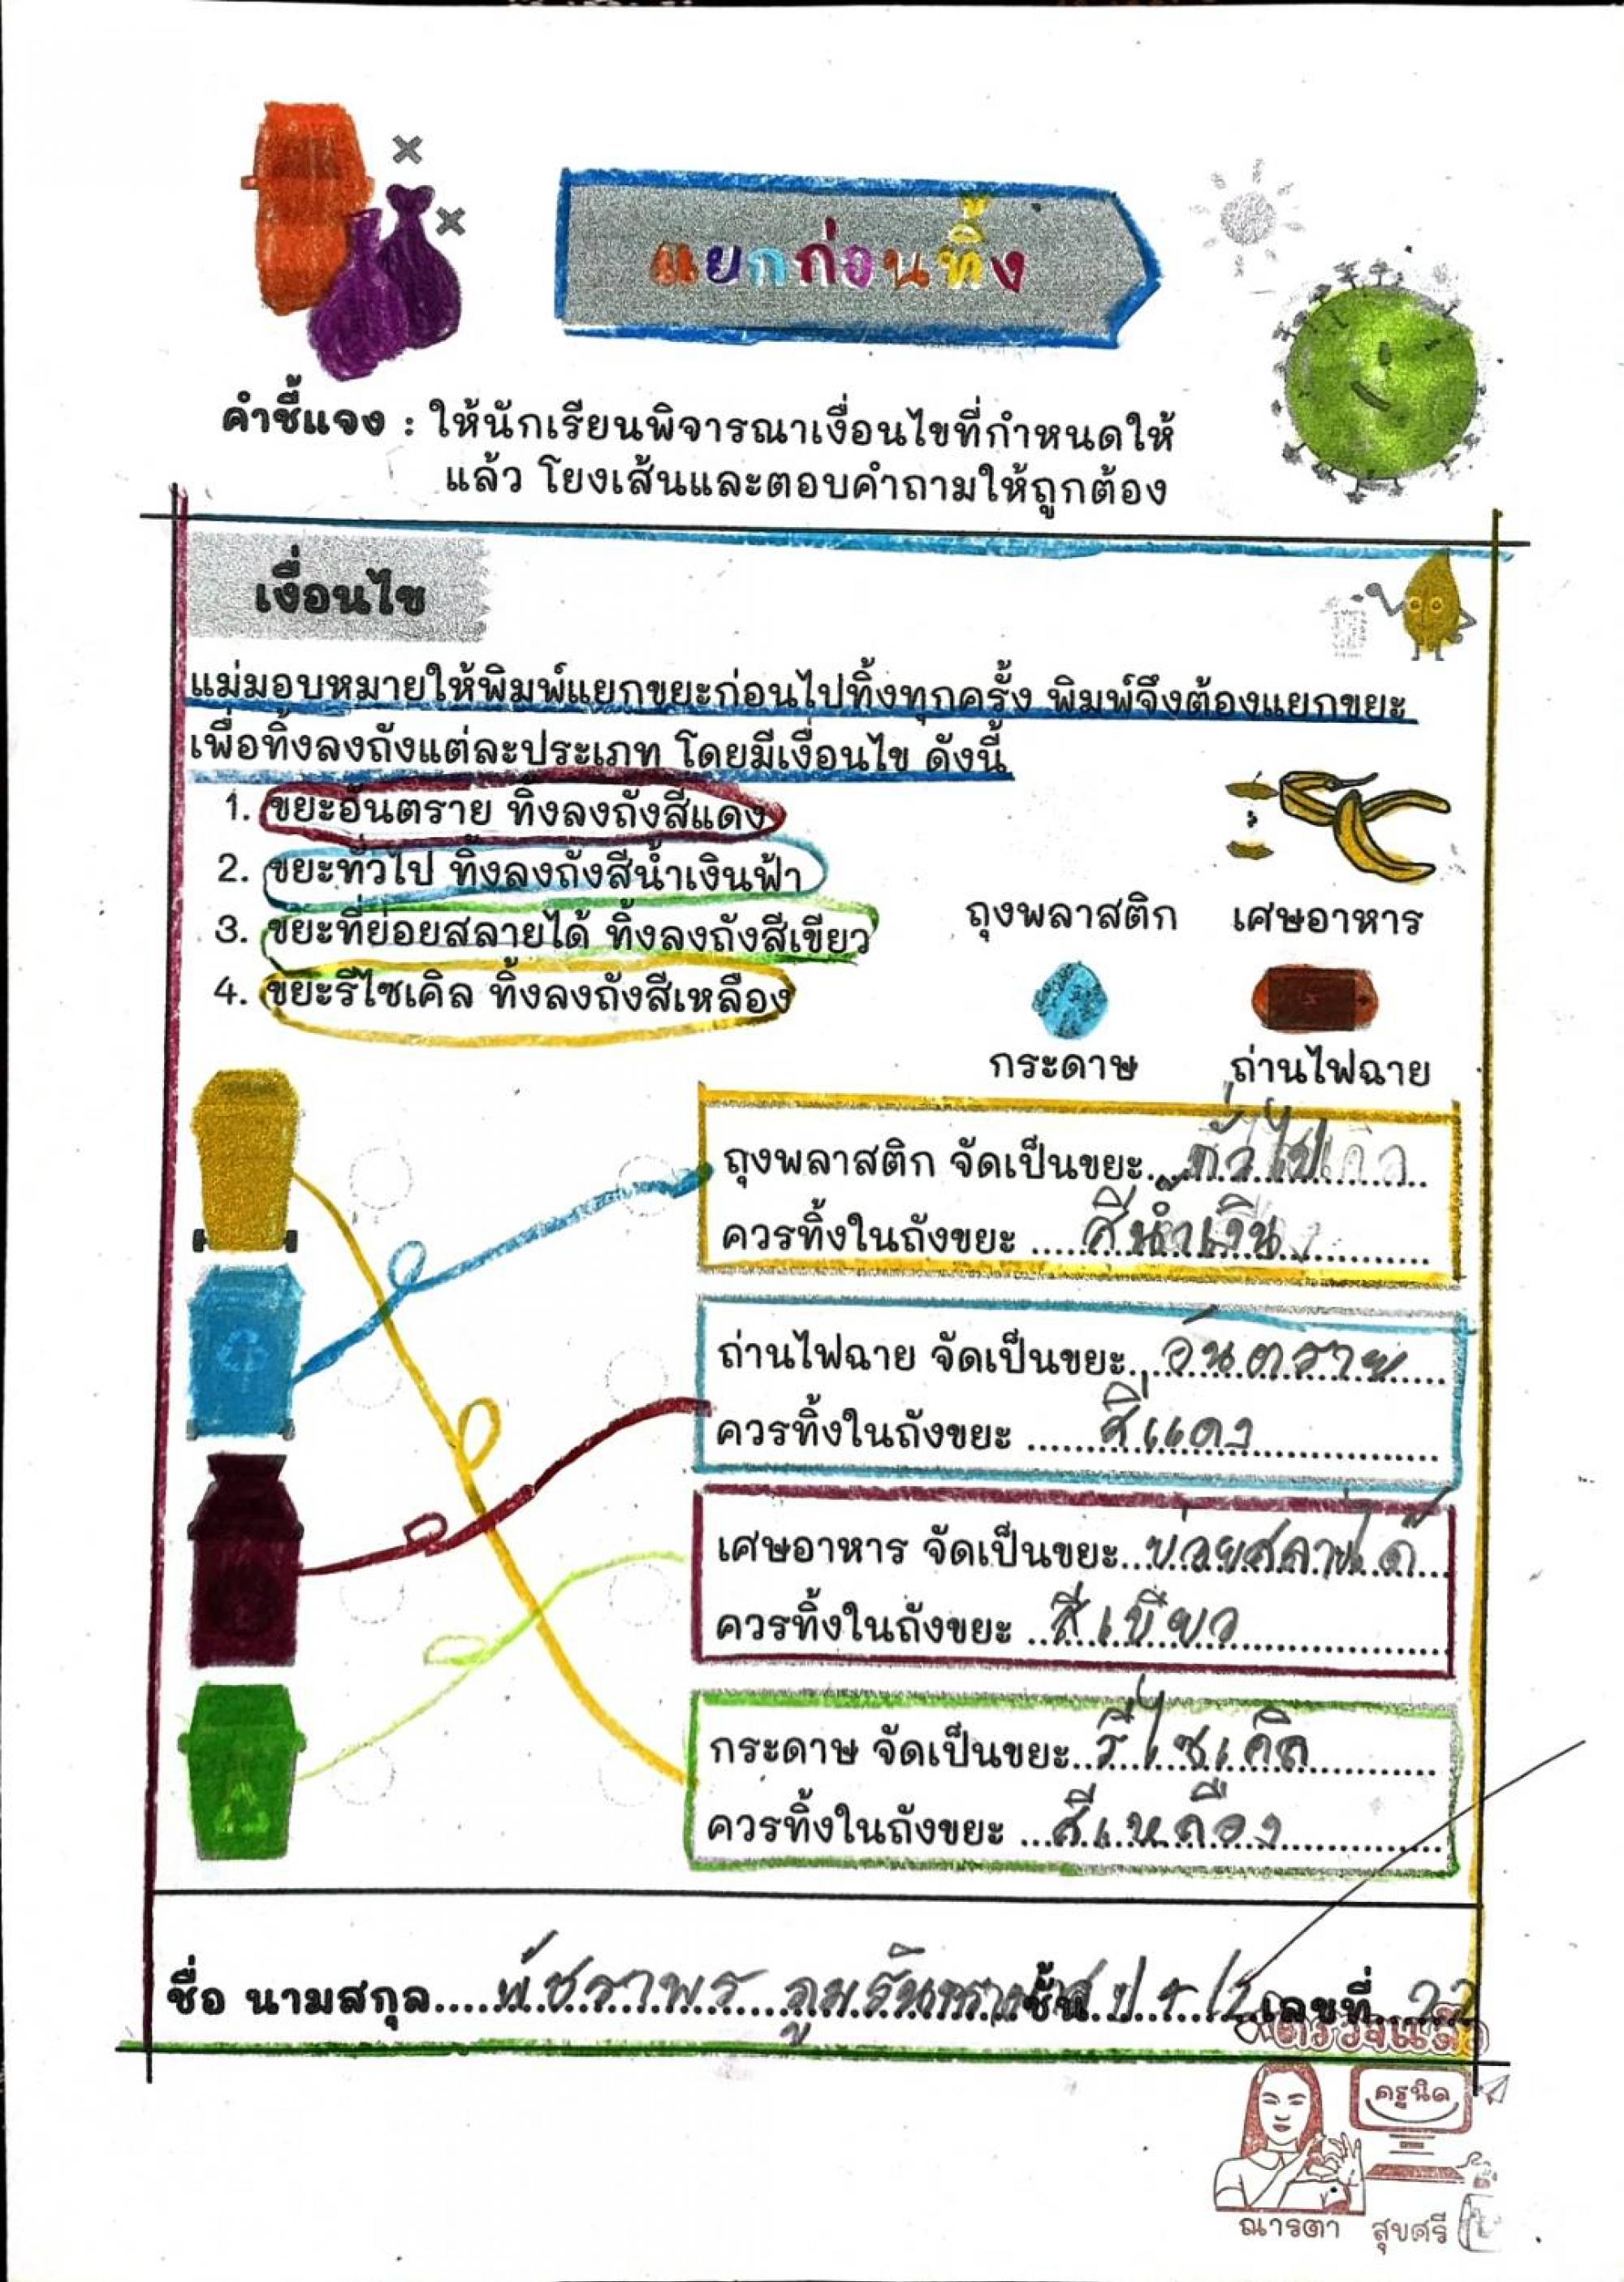 แยกก่อนทิ้ง
คำชี้แจง : ให้นักเรียนพิจารณาเงื่อนไขที่กำหนดให้
แล้ว โยงเส้นและตอบคำถามให้ถูกต้อง
เงื่อนไข
แม่มอบหมายให้พิมพ์แยกขยะก่อนไปทิ้งทุกครั้ง พิมพ์จึงต้องแยกขยะ
เพื่อทิ้งลงถังแต่ละประเภท โดยมีเงื่อนไข ดังนี้
1. ขยะอันตราย ทิ้งลงถังสีแดง
2. ขยะทั่วไป ทิ้งลงถังสีน้ำเงินฟ้า
3. ขยะที่ย่อยสลายได้ ทิ้งลงถังสีเขียว
4. ขยะรีไซเคิล ทิ้งลงถังสีเหลือง
ถุงพลาสติก เศษอาหาร
กระดาษ ถ่านไฟฉาย
ถุงพลาสติก จัดเป็นขยะ...ทั่วไป...
ควรทิ้งในถังขยะ ...สีน้ำเงิน...
ถ่านไฟฉาย จัดเป็นขยะ...อันตราย...
ควรทิ้งในถังขยะ ...สีแดง...
เศษอาหาร จัดเป็นขยะ...ย่อยสลายได้...
ควรทิ้งในถังขยะ ...สีเขียว...
กระดาษ จัดเป็นขยะ...รีไซเคิล...
ควรทิ้งในถังขยะ ...สีเหลือง...
ชื่อ นามสกุล...พัชราพร ... ชั้น... เลขที่...22
ตรวจแล้ว
ครูนิด
ณารตา สุขศรี